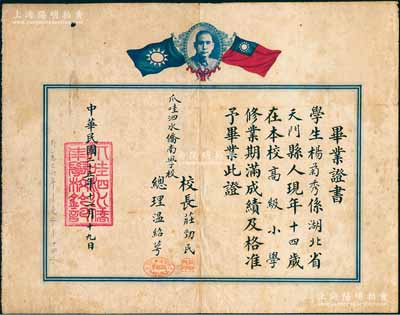 上海陽明拍賣
畢業證書
學生楊菊秀係湖北省
天門縣人現年十四歲
在本校高級小學
修業期滿成績及格准
予畢業此證
爪哇泗水僑南學校
校長莊勁民
總理溫紹萼
中華民國二十九年六月十九日